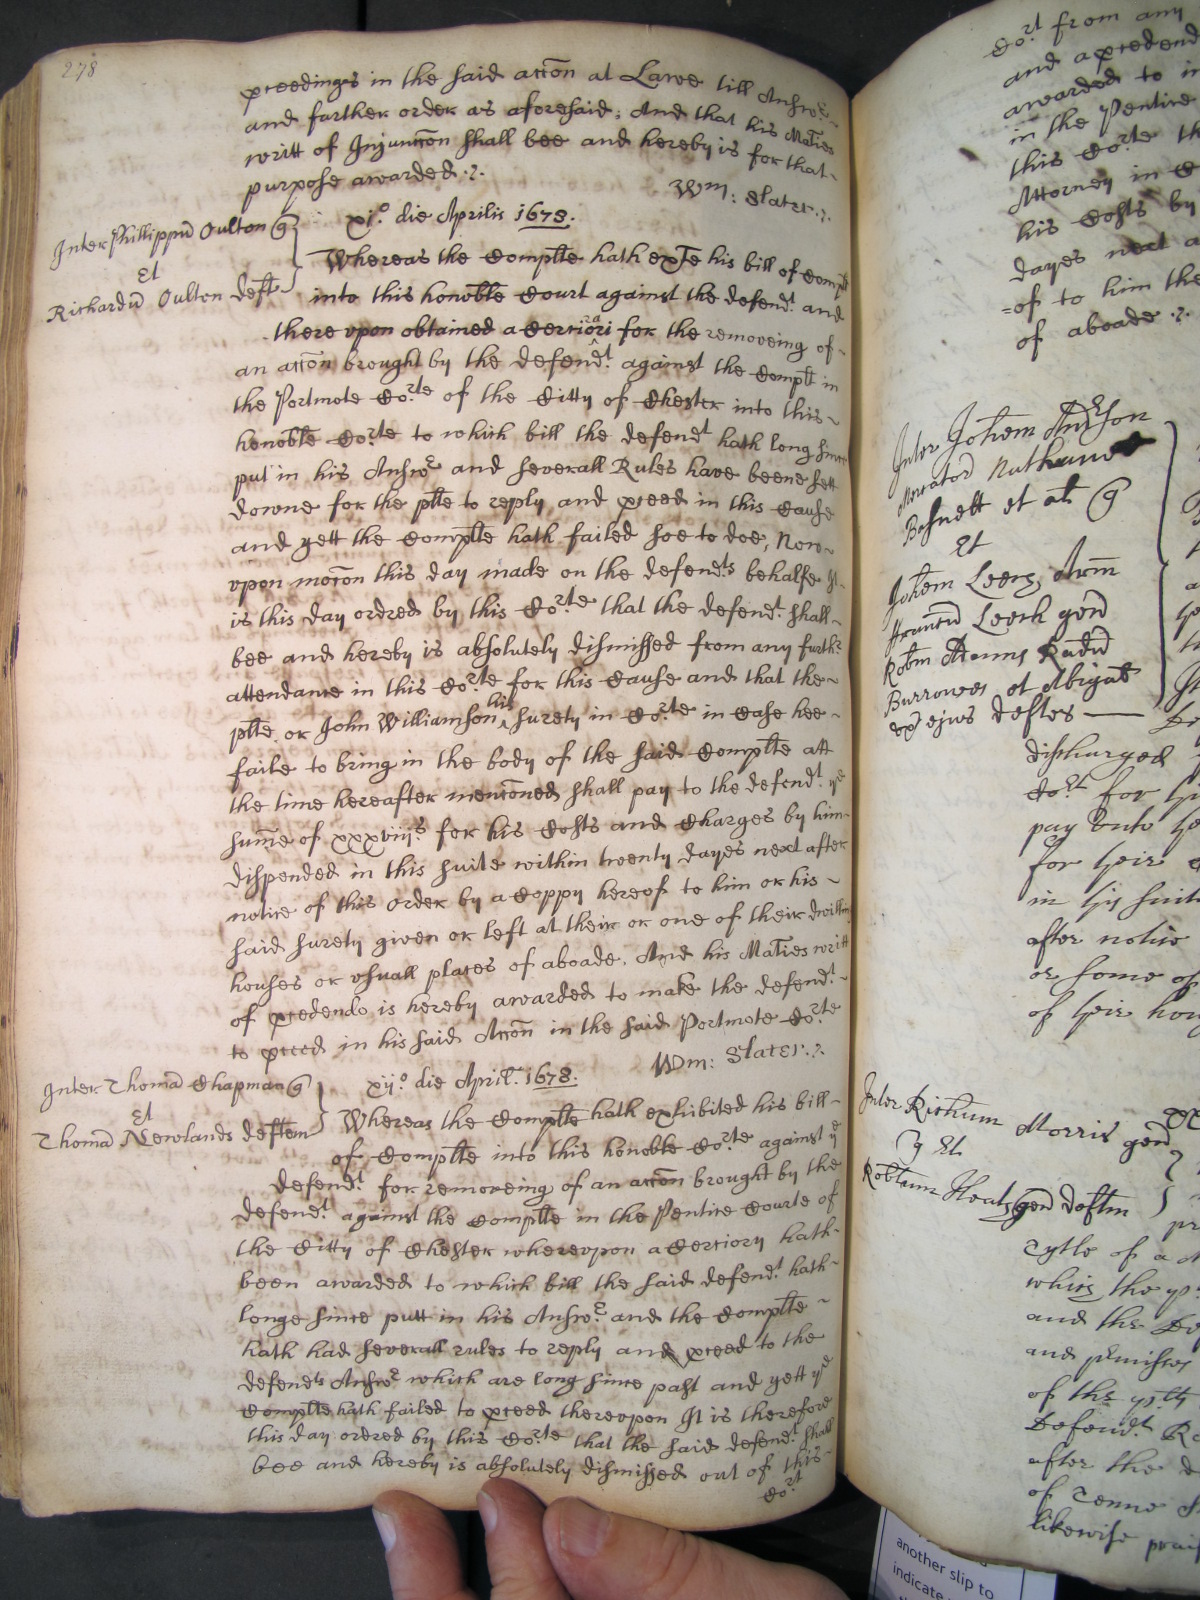 278
pceedinges in the said accōn at Lawe till Answr
and further order as aforesaid; And that his Maties
writt of Injunccōn shall bee and hereby is for that
purpose awarded
Wm: Slater
xi.o die Aprilis 1678.
Inter Phillippū Oulton q
Et
Richardū Oulton deft
Whereas the Complte hath exte his bill of Complt
into this honoble Court against the defendt and
there vpon obtained a Certiorari for the removeing of
an accōn brought by the defendt against the Complt in
the Portmote Corte of the Citty of Chester into this
honoble Corte to which bill the defendt hath long since
put in his Answr and severall Rules have beene sett
downe for the plte to reply and pceed in this Cause
and yett the Complte hath failed soe to doe, Now
vpon mocōn this day made on the defendts behalfe It
is this day ordred by this Corte that the defendt shall
bee and hereby is absolutely dismissed from any furthr
attendance in this Corte for this Cause and that the
plte, or John Williamson his surety in Corte in Case hee
faile to bring in the body of the said Complte att
the time hereafter mencōned shall pay to the defendt ye
sum̄e of xxxviijs for his Costs and Charges by him
dispended in this suite within twenty dayes next after
notice of this order by a Coppy hereof to him or his
said surety given or left at their or one of their dwelling
houses or vsuall places of aboade. And his Maties writt
of pcedendo is hereby awarded to make the defendt
to pceed in his said Accōn in the said Portmote Corte
Wm: Slater
Inter Thomā Chapman q
Et
Thomā Newlands deftem
xij.o die April. 1678.
Whereas the Complte hath exhibited his bill
of Complte into this honoble Corte against ye
defendt for removeing of an accōn brought by the
defendt against the Complte in the Pentice Courte of
the Citty of Chester wherevpon a Certiory hath
been awarded to which bill the said defendt hath
longe since putt in his Answr and the Complte
hath had severall rules to reply and pceed to the
defendts Answr which are long since past and yett ye
Complte hath failed to pceed therevpon It is therefore
this day ordred by this Corte that the said defendt shall
bee and hereby is absolutely dismissed out of this
Cort
Cort from any
and a pcedend
awarded to
in the Pentice
this Corte
Attorney in
his Costs by
dayes next a
of to him the
of aboade
Inter Johem
Mercator
et al q
Et
Johem Leech, Arm
Leech gen
Burrowes et Abigal
ejus deftes
discharged
Cort for
pay vnto
for their
in suit
after notice
or some of
of their hou
Inter Richum Morris gen
q Et
Robtum gen deftm
Tytle of a
the
and the
and pmisses
of the
Defendt
after the
of
likewise
another slip to
indicate